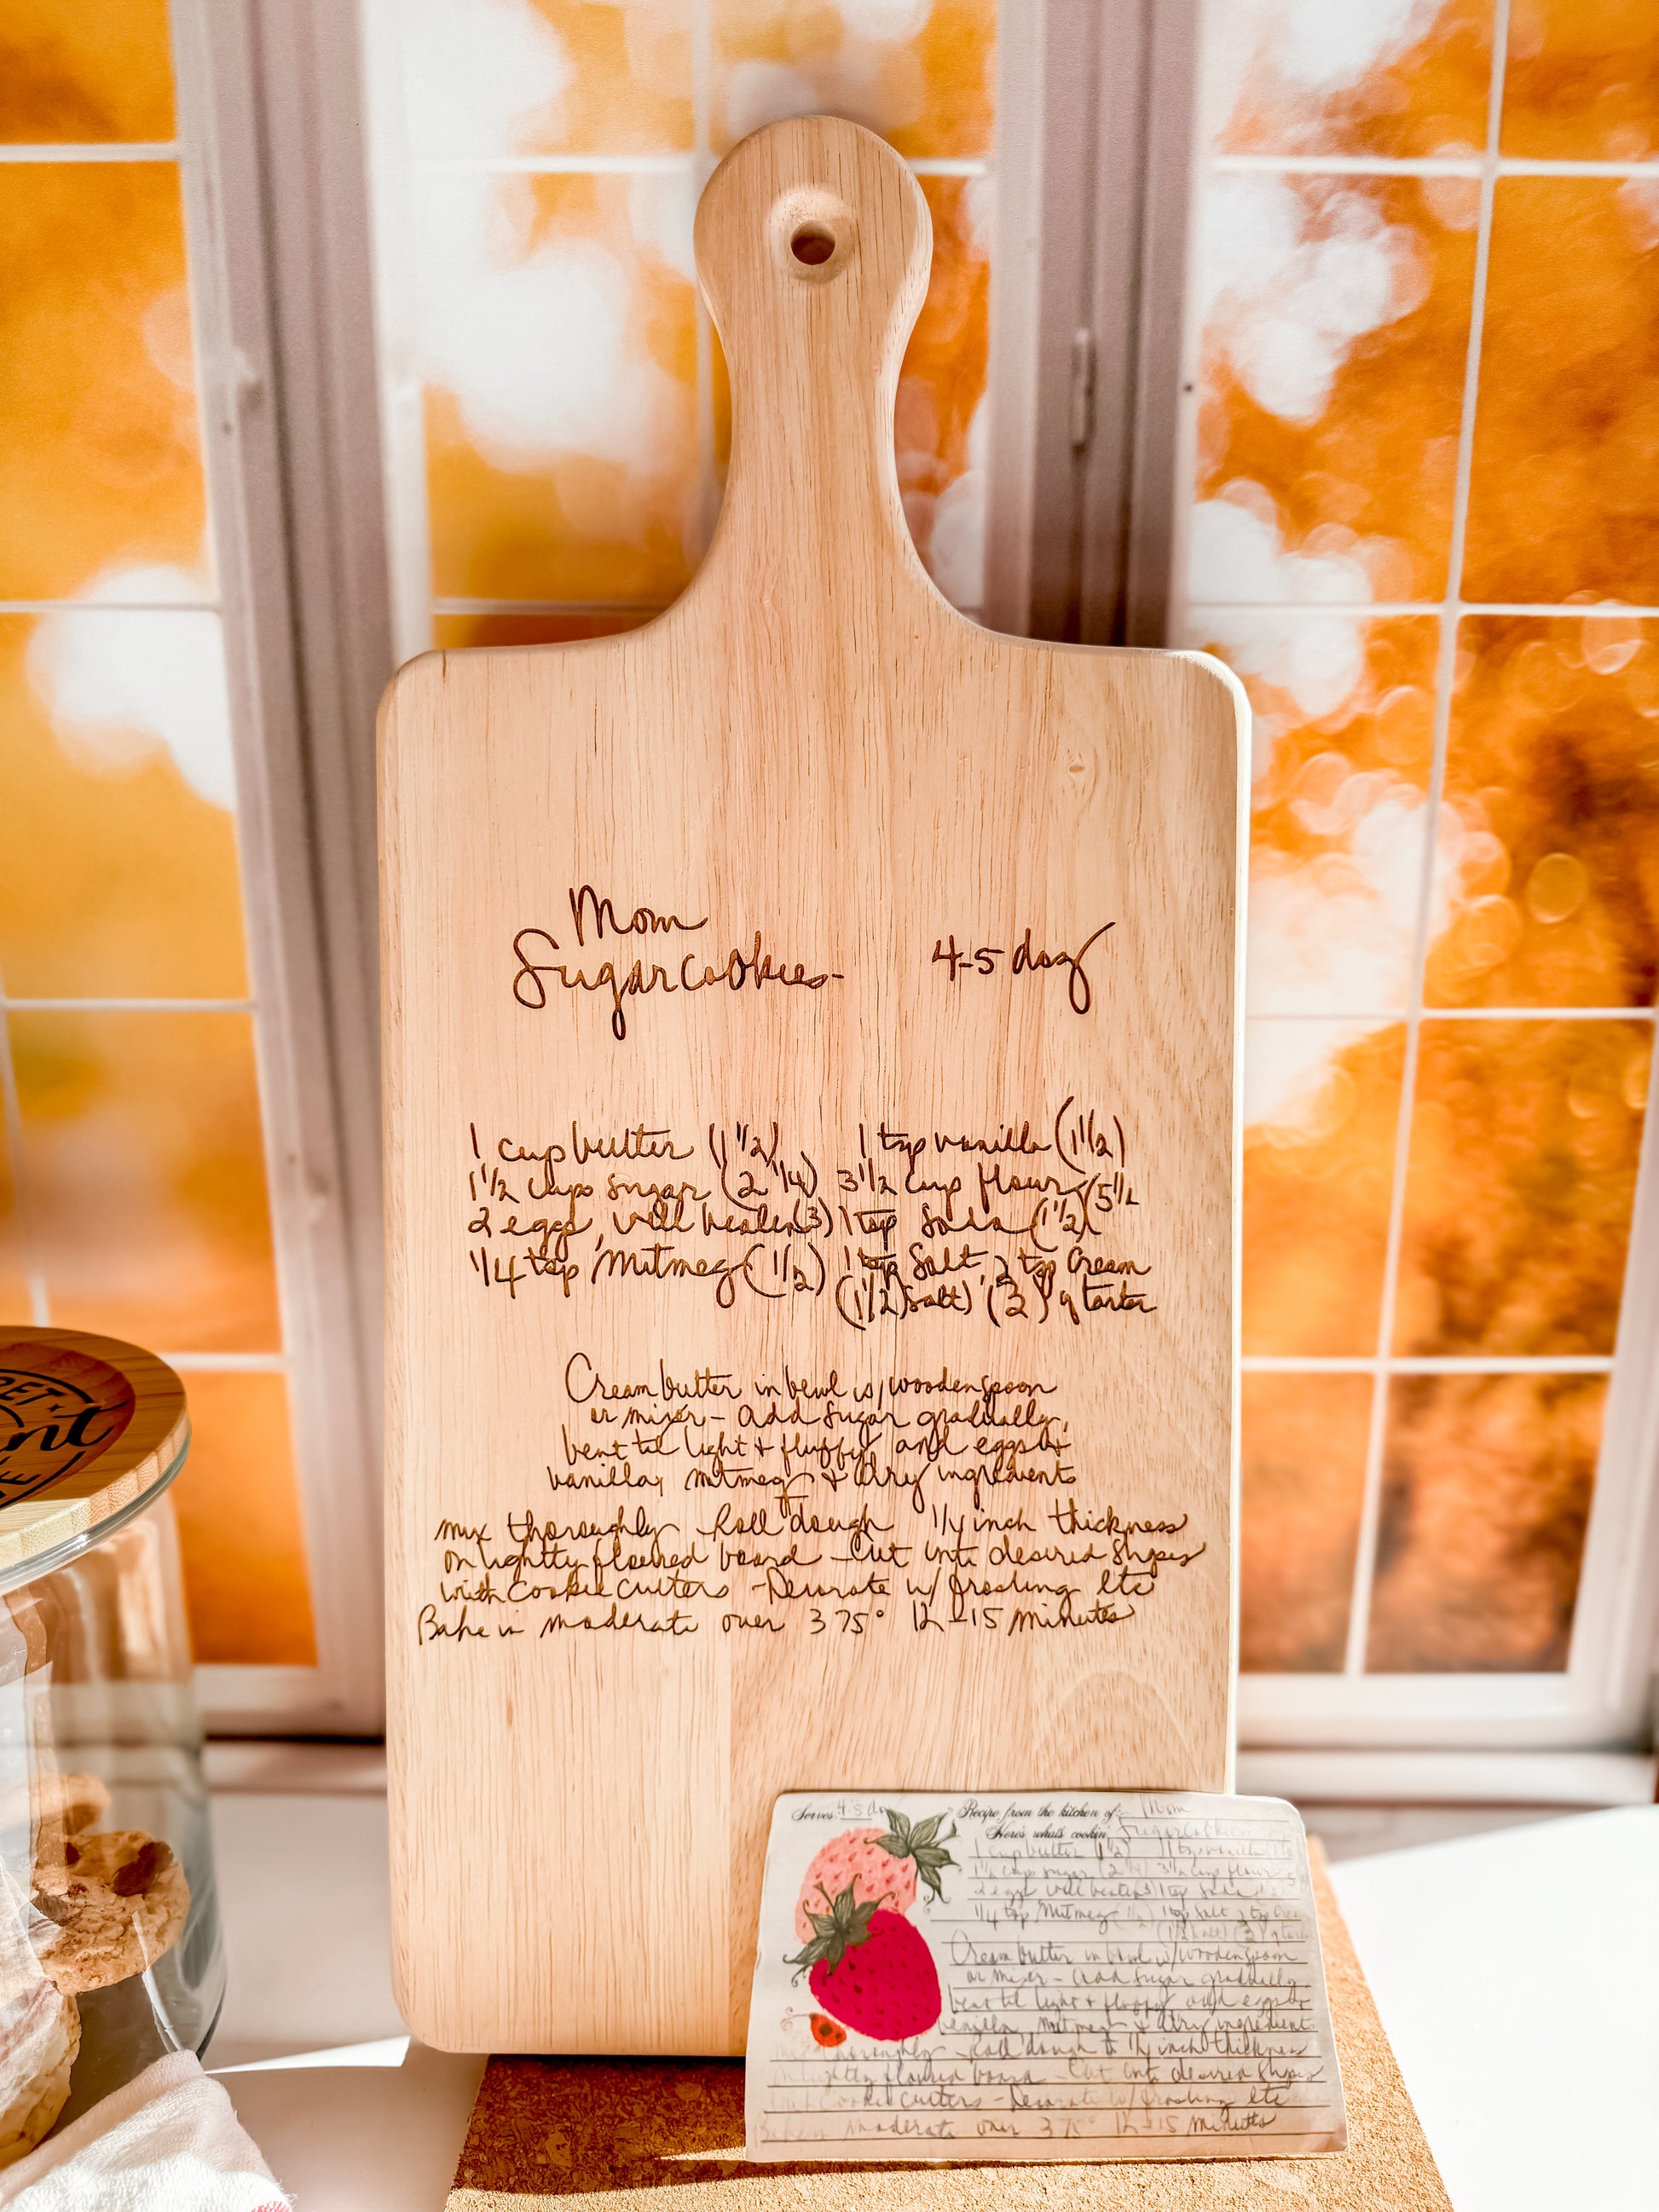 Mom
Sugar Cookies- 4-5 doz
1 cup butter (1 1/2) 1 tsp vanilla (1 1/2)
1 1/2 cups sugar (2 1/4) 3 1/2 cup flour (5 1/4
2 eggs, well beaten (3) 1 tsp Soda (1 1/2)
1/4 tsp Nutmeg (1/2) 1 tsp Salt, 2 tsp Cream
(1 1/2) Salt) (3) of tarter
Cream butter in bowl w/ wooden spoon
or mixer - add sugar gradually,
beat til light & fluffy, add eggs &
vanilla, nutmeg & dry ingredients
mix thoroughly Roll dough 1/4 inch thickness
on lightly floured board - Cut into desired Shapes
with Cookie Cutters - Decorate w/ frosting etc
Bake in moderate oven 375° 12-15 minutes
Serves: 4-5 do
Recipe from the kitchen of: Mom
Here's what's cookin' Sugar Cookies
1 cup butter (1 1/2) 1 tsp vanilla
1 1/2 cups sugar (2 1/4) 3 1/2 cup flour
2 eggs well beaten 3) 1 tsp Soda
1/4 tsp Nutmeg 1/2) 1 tsp Salt, 2 tsp
Cream butter in bowl w/ wooden spoon
or mixer - add sugar gradually,
beat til light & fluffy, add eggs &
vanilla, nutmeg & dry ingredients
thoroughly Roll dough to 1/4 inch thickness
lightly floured board - Cut into desired Shapes
Cookie Cutters - Decorate w/ frosting etc
Bake in moderate oven 375° 12-15 minutes